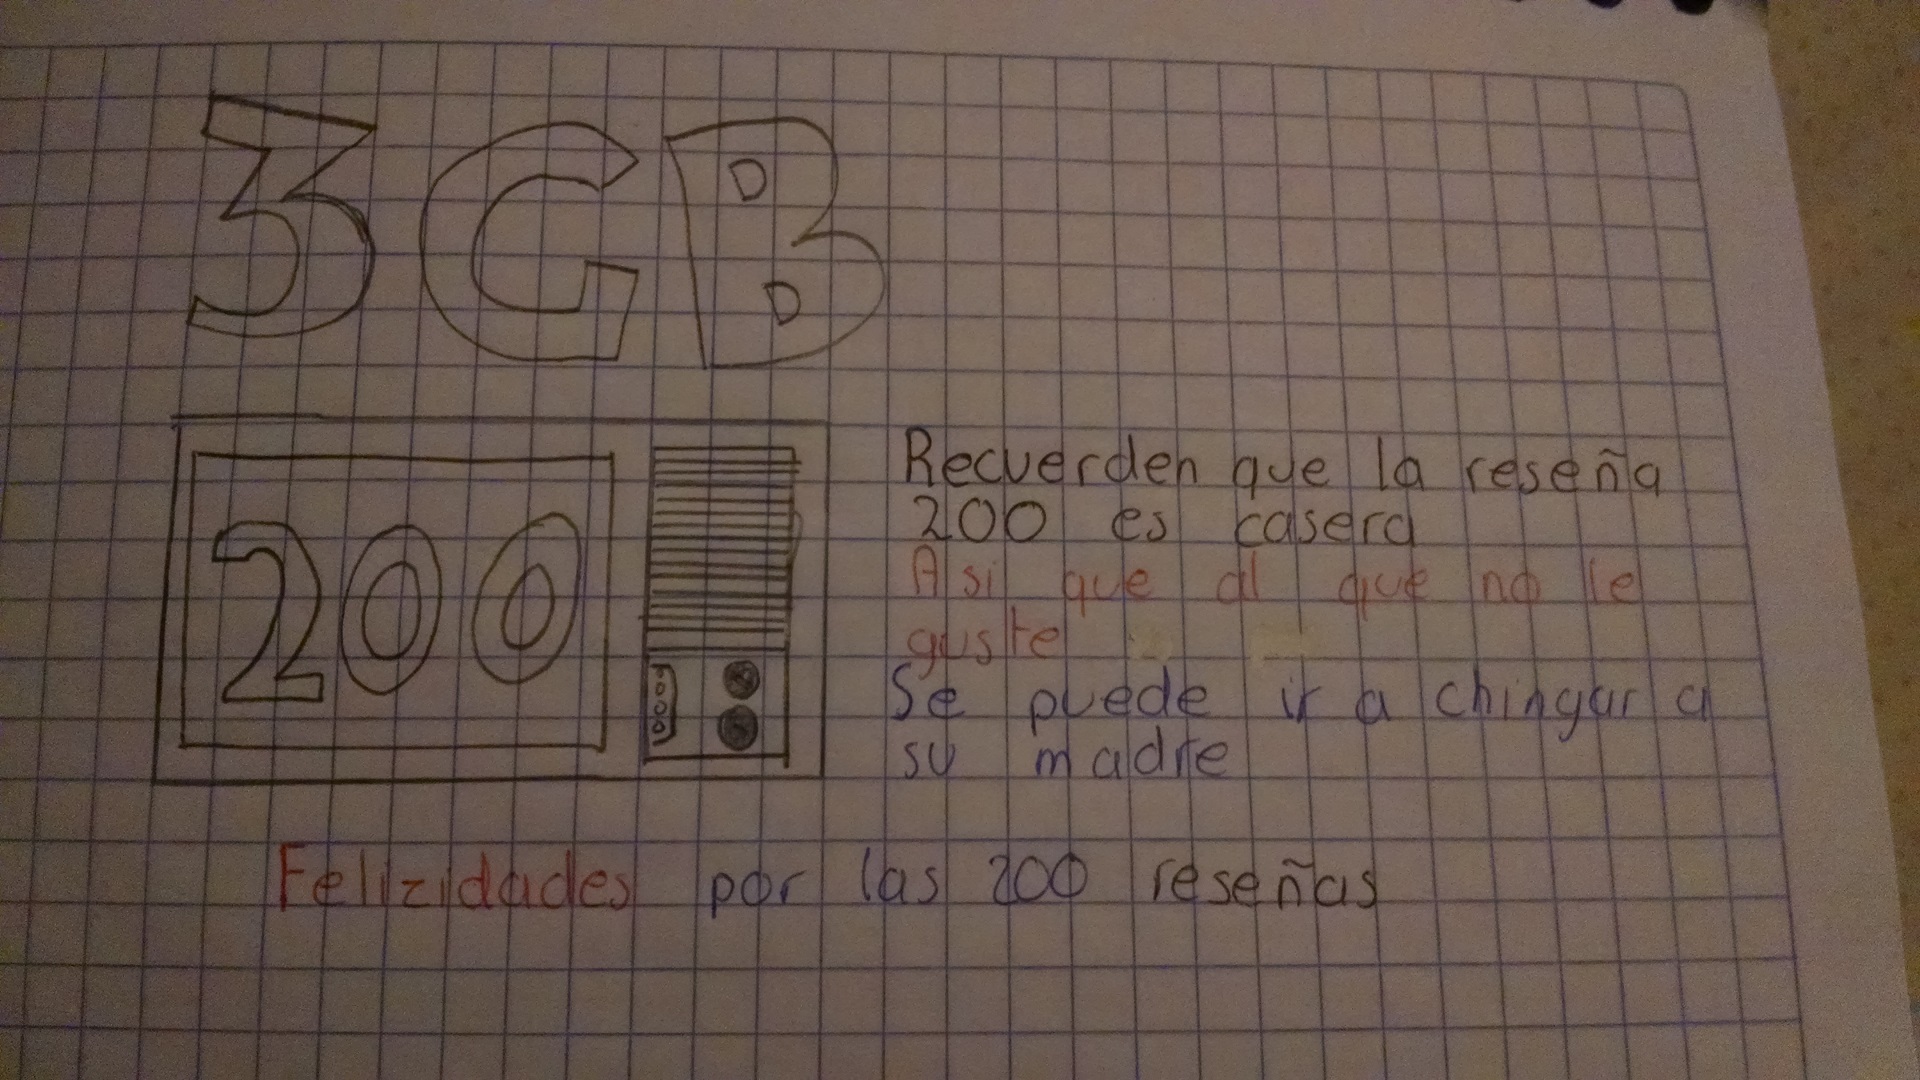 3GB
200
Recuerden que la reseña
200 es casera
Asi que al que no le
guste
Se puede ir a chingar a
su madre
Felizidades por las 200 reseñas